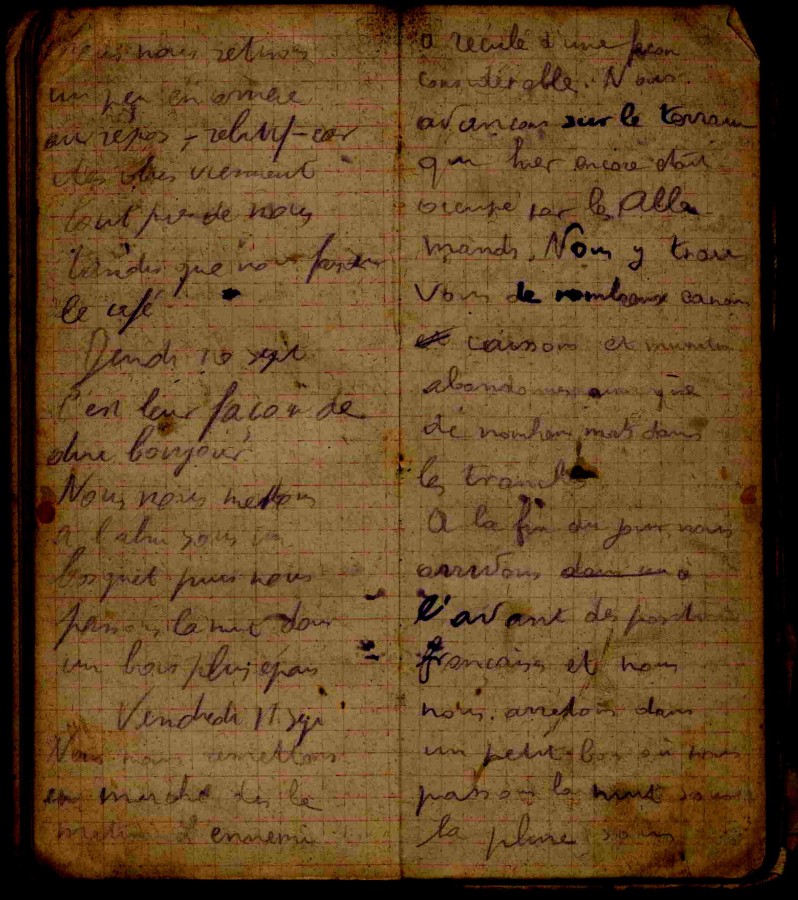 nous nous retirons
un peu en arriere
au repos - relatif - car
des obus viennent
tout près de nous
tandis que nous faisons
le café
Jeudi 10 sept
C'est leur façon de
dire bonjour
Nous nous mettons
a l'abri sous un
bosquet puis nous
passons la nuit dans
un bois plus épais
Vendredi 11 sep
Nous nous remettons
en marche des le
matin l'ennemi
a reculé d'une façon
considérable. Nous
avancons sur le terrain
qui hier encore était
occupé par les Alle
mands. Nous y trou
vons de nombreux canons
et caissons et munitions
abandonnes ainsi que
de nombreux morts dans
les tranchées
A la fin du jour nous
arrivons dans un a
l'avant des postes
francaises et nous
nous arretons dans
un petit bois où nous
passons la nuit sous
la pluie